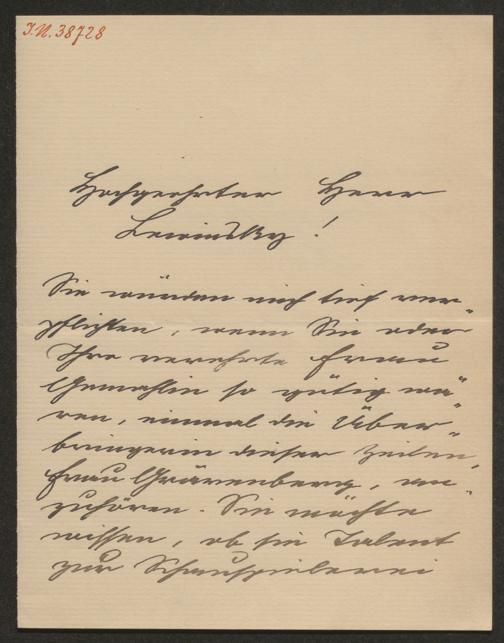 I.N. 38728
Hochgeehrter Herr
Lewinsky!
Sie würden mich tief ver-
pflichten, wenn Sie oder
Ihre verehrte Frau
Gemahlin so gütig wä-
ren, einmal die Über-
bringerin dieser Zeilen,
Frau Grävenberg, an-
zuhören. Sie möchte
wissen, ob sie Talent
zur Schauspielerei